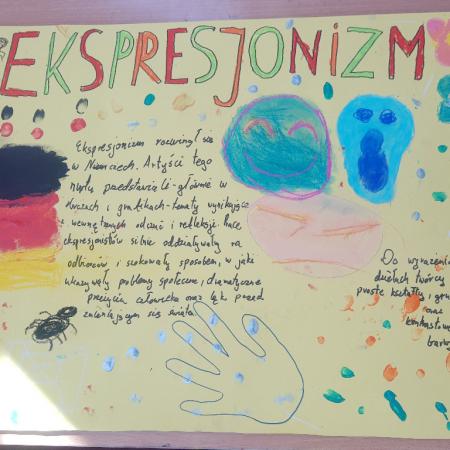 EKSPRESJONIZM
Ekspresjonizm rozwinął się
w Niemczech. Artyści tego
nurtu przedstawiali głównie w
obrazach i grafikach tematy wynikające
z wewnętrznych odczuć i refleksji. Prace
ekspresjonistów silnie oddziaływały na
odbiorców i szokowały sposobem, w jaki
ukazywały problemy społeczne i dramatyczne
przeżycia człowieka oraz lęk przed
zmieniającym się światem
Do wyrażenia
dziełach twórcy
proste kształty, gru
oraz
kontrastow
barwy